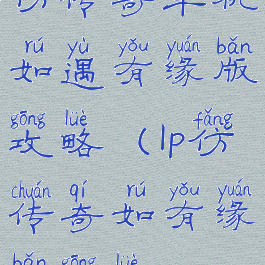 rú yù yǒu yuán bǎn
如遇有缘版
gōng lüè fǎng
攻略（lp仿
chuán qí rú yǒu yuán
传奇如有缘
bǎn gōng lüè